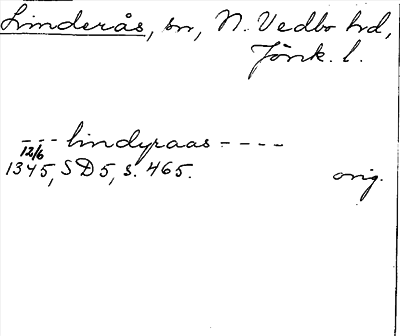 Linderås, sn, N. Vedbo hd,
Jönk. l.
--- lindyraas ----
12/6
1345, SD5, s. 465. orig.